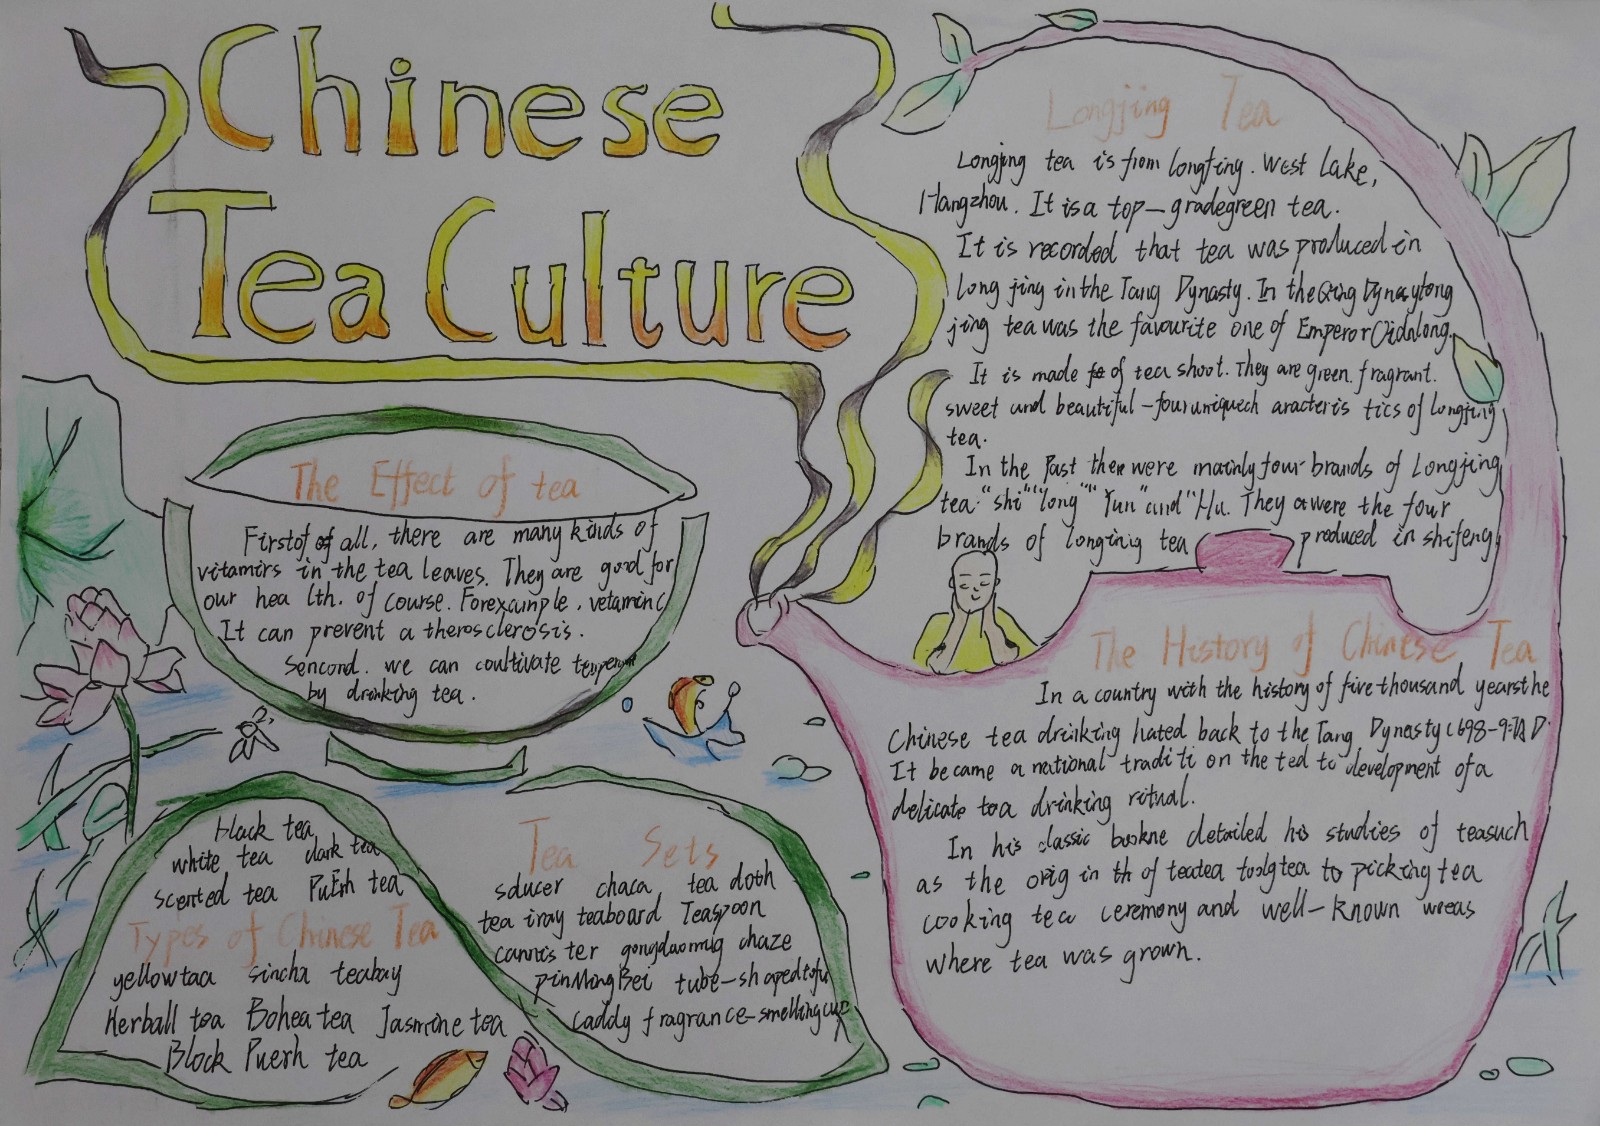 Chinese
Tea Culture
Longjing Tea
Longjing tea is from longjing. West Lake,
Hangzhou. It is a top-gradegreen tea.
It is recorded that tea was produced in
long jing in the Tang Dynasty. In the Qing Dynasylong
jing tea was the favourite one of Emperor Qianlong.
It is made of tea shoot. They are green. fragrant.
sweet and beautiful-fouruniquech aracteris tics of longjing
tea.
In the Past there were mainly four brands of Longjing
tea. "shi" "long" "Yun" and "Hu. They were the four
brands of longjing tea produced in shifeng
The Effect of tea
Firstof of all, there are many kinds of
vitamirs in the tea leaves. They are good for
our hea lth. of course. Forexcimple, vetaminc
It can prevent a therosclerosis.
Sencond. we can coultivate temper
by drinking tea.
The History of Chinese Tea
In a country with the history of five thousand yearsthe
Chinese tea drinking hated back to the Tang Dynasty (698-907A D.
It became a national traditi on the ted to development of a
delicate tea drinking ritual.
In his classic bookne detailed his studies of teasuch
as the orig in th of teatea toolgtea to picking tea
cooking tea ceremony and well-known wreas
where tea was grown.
black tea
white tea dark tea
scented tea PuErh tea
Types of Chinese Tea
yellowtaa sincha teabay
Herball tea Bohea tea Jasmine tea
Block Puerh tea
Tea Sets
saucer chaca tea doth
tea tray teaboard Teaspoon
cannis ter gongdaomig chaze
pinMingBei tube-shapedtofu
caddy fragrance-smelling cup